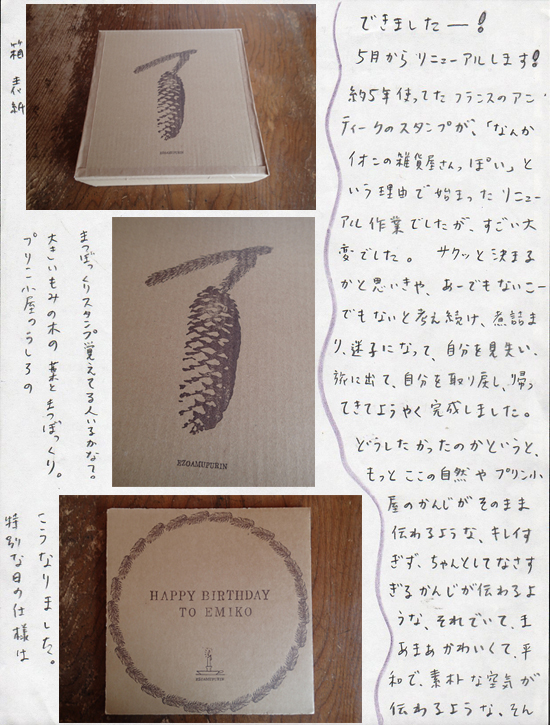 できましたー!
5月から リニューアルします!
約5年使ってた フランスのアン
ティークのスタンプが、「なんか
イオンの雑貨屋さんっぽい」と
いう理由で始まった リニュー
アル作業でしたが、すごい大
変でした。 サクッと決まる
かと思いきや、あーでもないこー
でもないと考え続け、煮詰ま
り、迷子になって、自分を見失い、
旅に出て、自分を取り戻し、帰っ
てきてようやく完成しました。
どうしたかったのかというと、
もっとここの自然やプリン小
屋のかんじがそのまま
伝わるような、キレイす
ぎず、ちゃんとしてなさす
ぎるかんじが伝わるよ
うな、それでいて、ま
あまあかわいくて、平
和で、素朴な空気が
伝わるような、そん
箱 表紙
EZOAMUPURIN
プリン小屋のうしろの
大きいもみの木の葉とまつぼっくり。
まつぼっくりスタンプ覚えてる人いるかなぁ。
EZOAMUPURIN
特別な日の仕様は
こうなりました。
HAPPY BIRTHDAY
TO EMIKO
EZOAMUPURIN